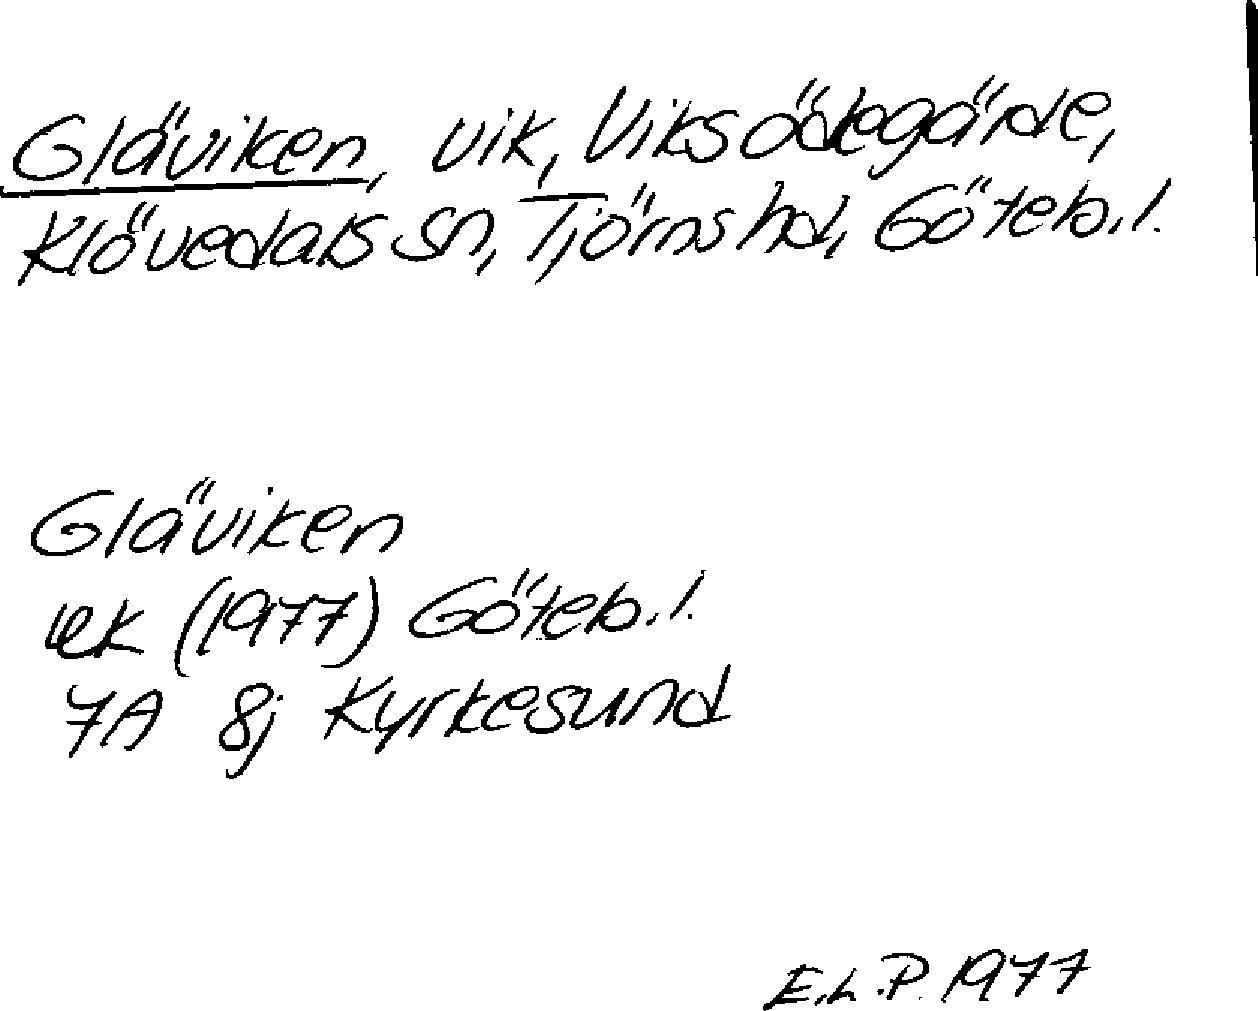 Gläviken, vik, Viks ödegärde,
Klövedals sn, Tjörns hd, Göteb.l.
Gläviken
ek (1977) Göteb.l.
7A 8j Kyrkesund
E.L.P. 1977